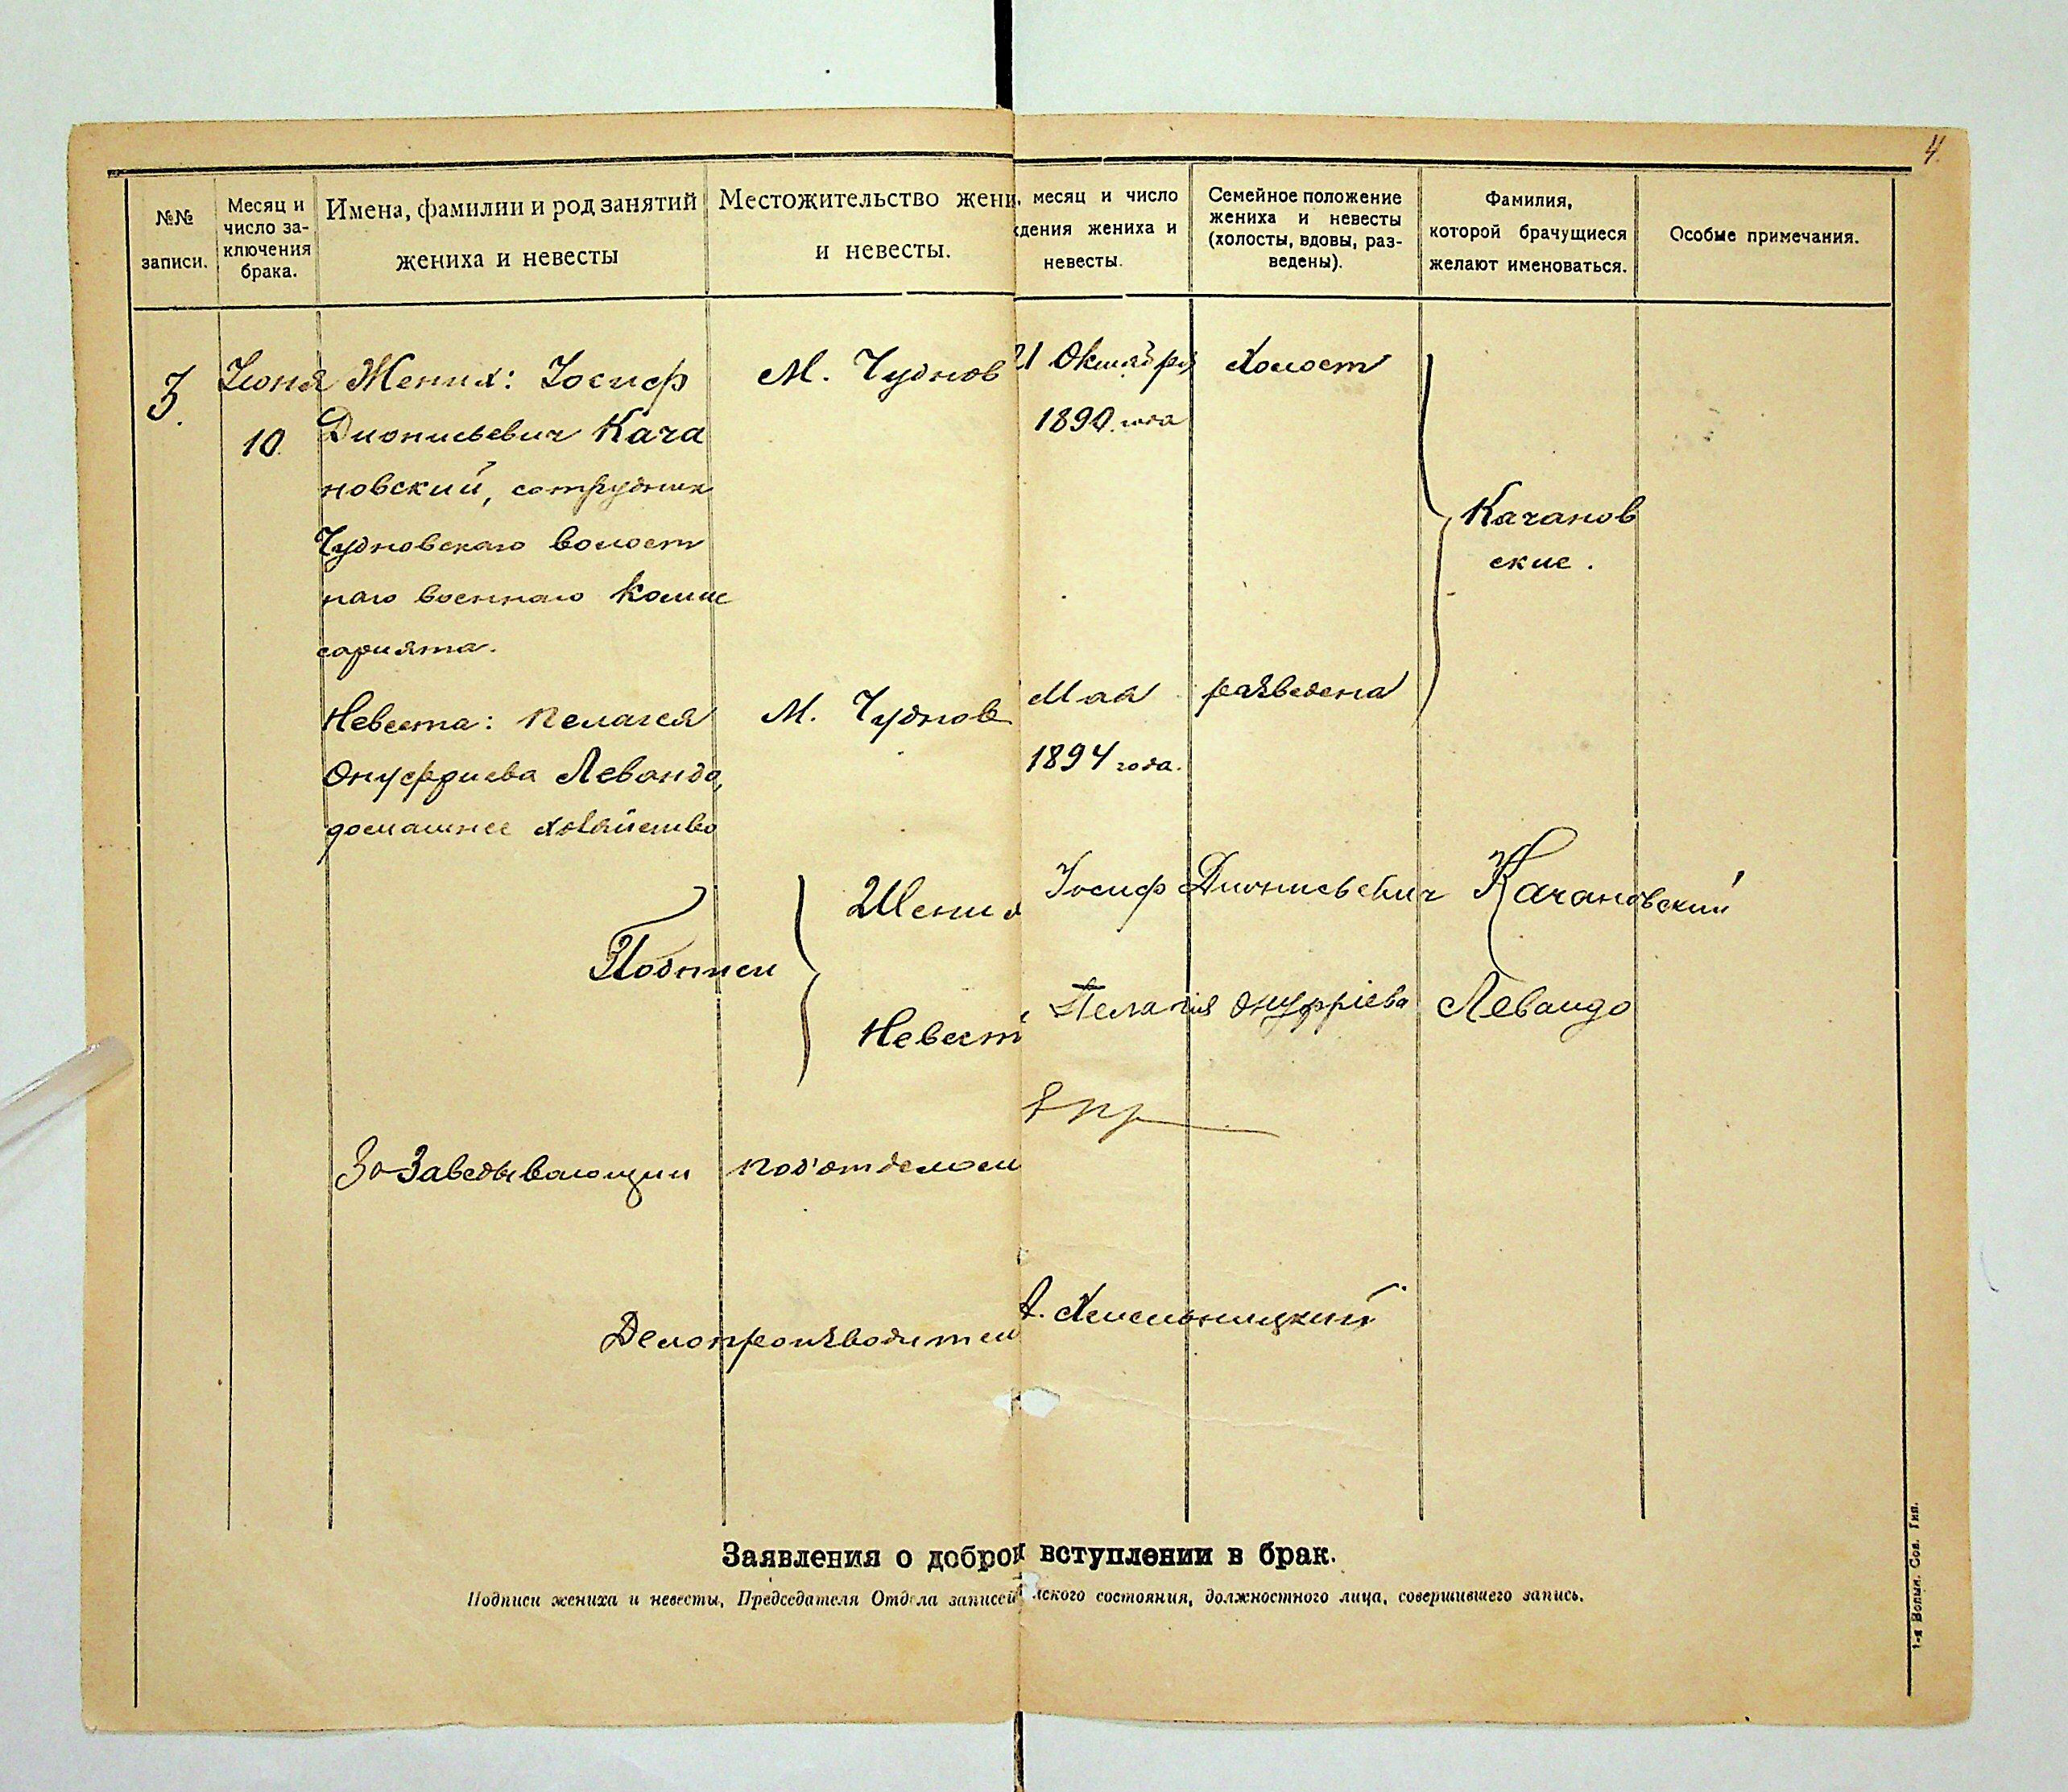 4
№№ записи.
Месяц и число за-
ключения брака.
Имена, фамилии и род занятий
жениха и невесты
Местожительство жени
и невесты.
месяц и число
дения жениха и
невесты.
Семейное положение
жениха и невесты
(холосты, вдовы, раз-
ведены).
Фамилия,
которой брачущиеся
желают именоваться.
Особые примечания.
3. Июня Жених: Иосиф М. Чуднов 21 Октября Холост
10 Дионисьевич Кача 1890 года
новский, сотрудник
Качанов
Чудновскаго волост
ские.
наго военнаго комис
сариата.
Невеста: Пелагея М. Чуднов Мая разведена
Онуфриева Левандо, 1894 года.
домашнее хозяйство
Подписи
Жених Иосиф Дионисьевич Качановский
Невест Пелагия Онуфріева Левандо
За Заведывающий под'отделом
Делопроизводитель А. Хмельницкий
Заявления о добро вступлении в брак.
Подписи жениха и невесты, Председателя Отдела записей ского состояния, должностного лица, совершившего запись.
1-я Волын. Сов. Тип.